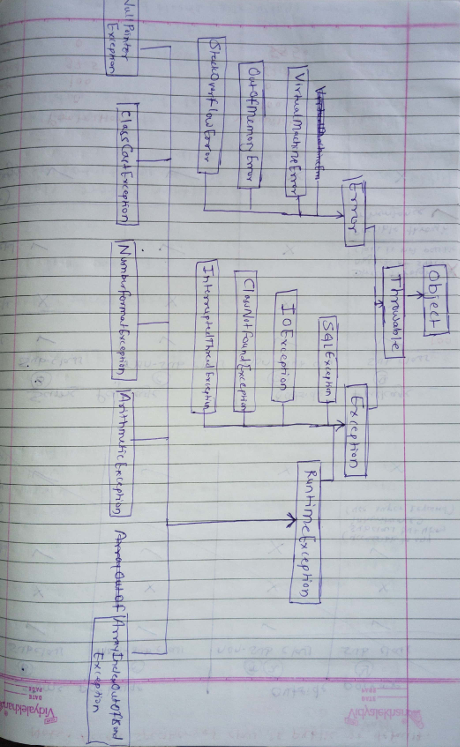 Object
Throwable
Error
Exception
VirtualMachineError
OutOfMemoryError
StackOverFlowError
SQLException
IOException
ClassNotFoundException
InterruptedThreadException
RuntimeException
NullPointer
Exception
ClassCastException
NumberFormatException
ArithmeticException
ArrayOutOf
ArrayIndexOutOfBound
Exception
Vidyalekhan
DATE